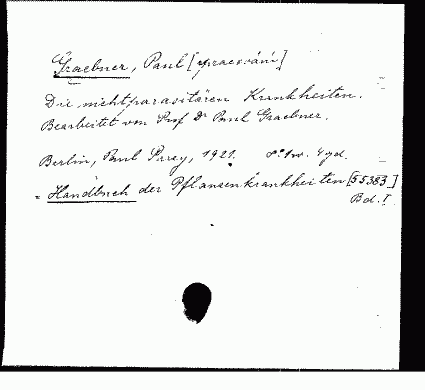 Graebner, Paul [zpracování]
Die nichtparasitären Krankheiten.
Bearbeitet von Prof Dr Paul Graebner.
Berlin, Paul Parey, 1921. 8° 4 vyd.
= Handbuch der Pflanzenkrankheiten [55383]
Bd. I.